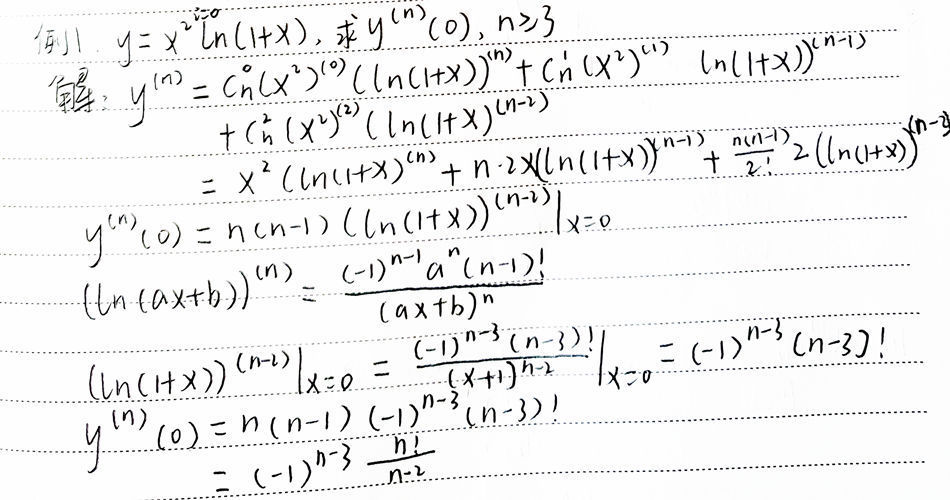 例1. y = x² ln(1+x), 求 y⁽ⁿ⁾(0), n≥3
i=0
解: y⁽ⁿ⁾ = Cₙ⁰(x²)⁽⁰⁾(ln(1+x))⁽ⁿ⁾ + Cₙ¹(x²)⁽¹⁾ ln(1+x))⁽ⁿ⁻¹⁾
+ Cₙ²(x²)⁽²⁾(ln(1+x)⁽ⁿ⁻²⁾
= x²(ln(1+x)⁽ⁿ⁾ + n·2x(ln(1+x))⁽ⁿ⁻¹⁾ + n(n-1)/2! 2(ln(1+x))⁽ⁿ⁻²⁾
y⁽ⁿ⁾(0) = n(n-1)(ln(1+x))⁽ⁿ⁻²⁾|x=0
(ln(ax+b))⁽ⁿ⁾ = (-1)ⁿ⁻¹aⁿ(n-1)!/(ax+b)ⁿ
(ln(1+x))⁽ⁿ⁻²⁾|x=0 = (-1)ⁿ⁻³(n-3)!/(x+1)ⁿ⁻²|x=0 = (-1)ⁿ⁻³(n-3)!
y⁽ⁿ⁾(0) = n(n-1)(-1)ⁿ⁻³(n-3)!
= (-1)ⁿ⁻³ n!/n-2